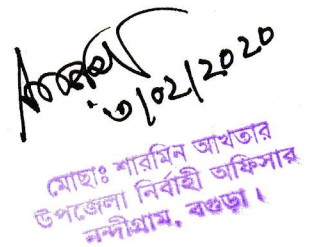 ৩/০২/২০২০
মোছাঃ শারমিন আখতার
উপজেলা নির্বাহী অফিসার
নন্দীগ্রাম, বগুড়া।